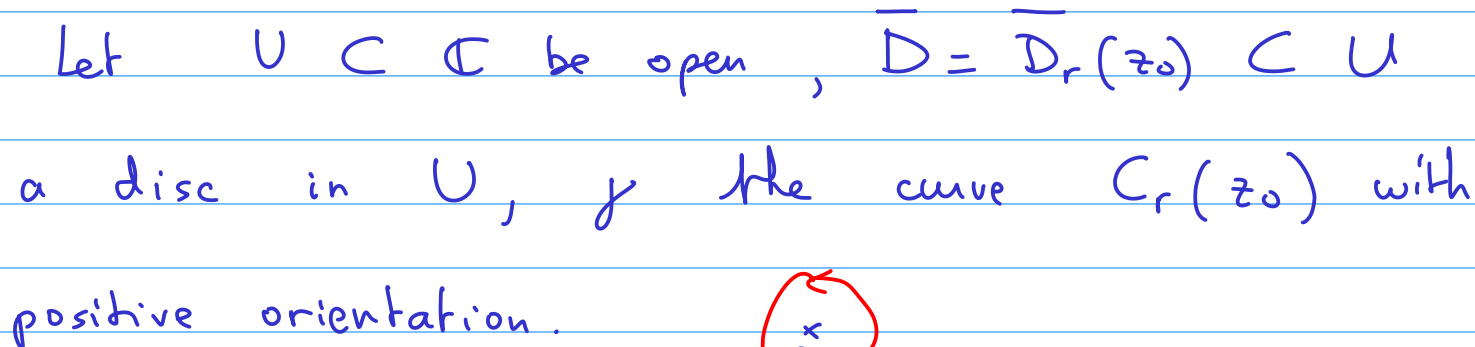 Let U ⊂ ℂ be open, D̅ = D̅ᵣ(z₀) ⊂ U
a disc in U, γ the curve Cᵣ(z₀) with
positive orientation.